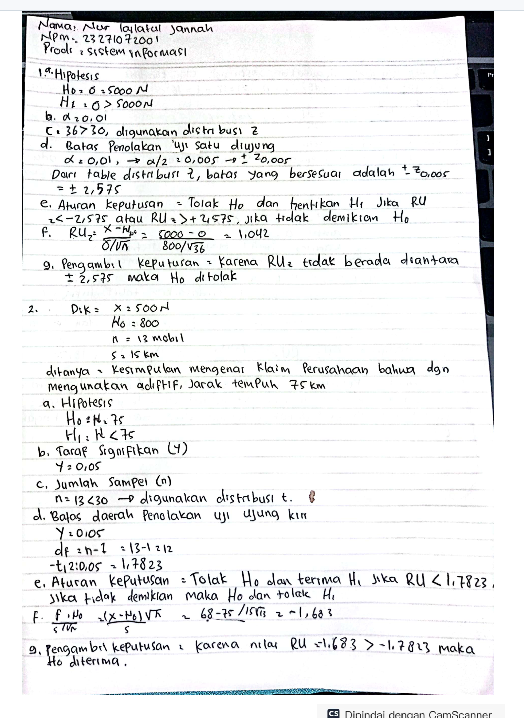 Nama: Nur laylatul Jannah
Npm: 23271072001
Prodi: Sistem informasi
1.a. Hipotesis
Ho = 0 = 5000 N
H1 = 0 > 5000 N
b. α = 0,01
c. 36 > 30, digunakan distribusi z
d. Batas Penolakan uji satu diujung
α = 0,01, → α/2 = 0,005 → ± Z0,005
Dari table distribusi z, batas yang bersesuai adalah ± Z0,005
= ± 2,575
e. Aturan keputusan = Tolak Ho dan hentikan H1 Jika RU
z < -2,575 atau RUz > + 2,575, jika tidak demikian Ho
F. RUz = = 5000 - 0 / 800/√36 = 1,042
g. Pengambil keputusan = karena RUz tidak berada diantara
± 2,575 maka Ho ditolak
2. Dik = x = 500 N
Ho = 800
n = 13 mobil
s = 15 km
ditanya = kesimpulan mengenai klaim Perusahaan bahwa dgn
mengunakan adiftif, Jarak tempuh 75 km
a. Hipotesis
Ho = N = 75
H1 = N < 75
b. Taraf Signifikan (y)
y = 0,05
c. Jumlah Sampel (n)
n = 13 < 30 → digunakan distribusi t.
d. Batas daerah Penolakan uji ujung kiri
y = 0,05
df = n-1 = 13-1 = 12
-t12:0,05 = 1,7823
e. Aturan keputusan = Tolak Ho dan terima H1 Jika RU < 1,7823,
Jika tidak demikian maka Ho dan tolak H1
F. = (x-Ho)√n / s = 68-75 / = -1,683
g. Pengambil keputusan = karena nilai RU -1,683 > -1,7823 maka
Ho diterima.
CS Dipindai dengan CamScanner